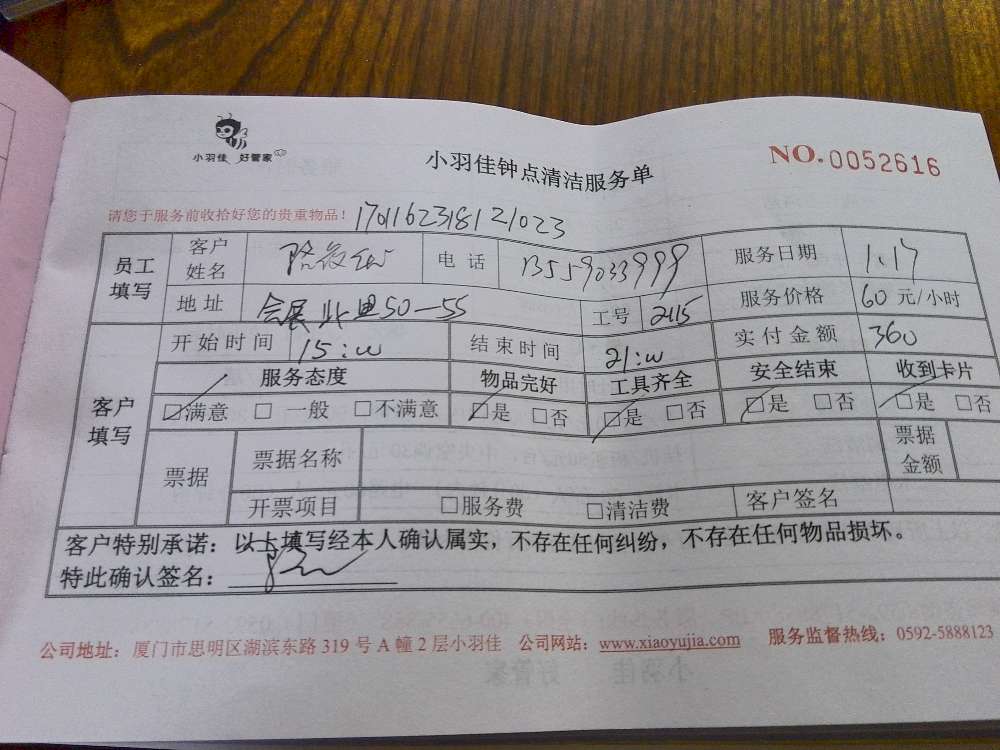 小羽佳 好管家
小羽佳钟点清洁服务单
NO.0052616
请您于服务前收拾好您的贵重物品！ 1701162318121023
员工填写 客户姓名 电话 13559033999 服务日期 1.17
地址 会展北里50-55 工号 2115 服务价格 60元/小时
客户填写 开始时间 15:00 结束时间 21:00 实付金额 360
服务态度 物品完好 工具齐全 安全结束 收到卡片
☑满意 □一般 □不满意 ☑是 □否 ☑是 □否 ☑是 □否 ☑是 □否
票据 票据名称 票据金额
开票项目 □服务费 □清洁费 客户签名
客户特别承诺：以上填写经本人确认属实，不存在任何纠纷，不存在任何物品损坏。
特此确认签名：
公司地址：厦门市思明区湖滨东路319号A幢2层小羽佳 公司网站：www.xiaoyujia.com 服务监督热线：0592-5888123